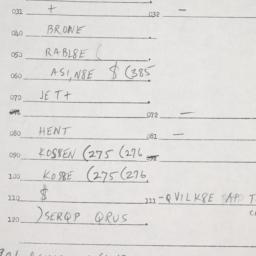 031 + 032 —
040 BRONE
050 RABL8E (
060 ASI,N8E $ (385
070 JET+
072 —
080 HENT
081 —
090 KOSBEN (275 (276
100 KOSBE (275 (276
110 $ 111 -QVILK8E AP T
120 )SERQP QRUS